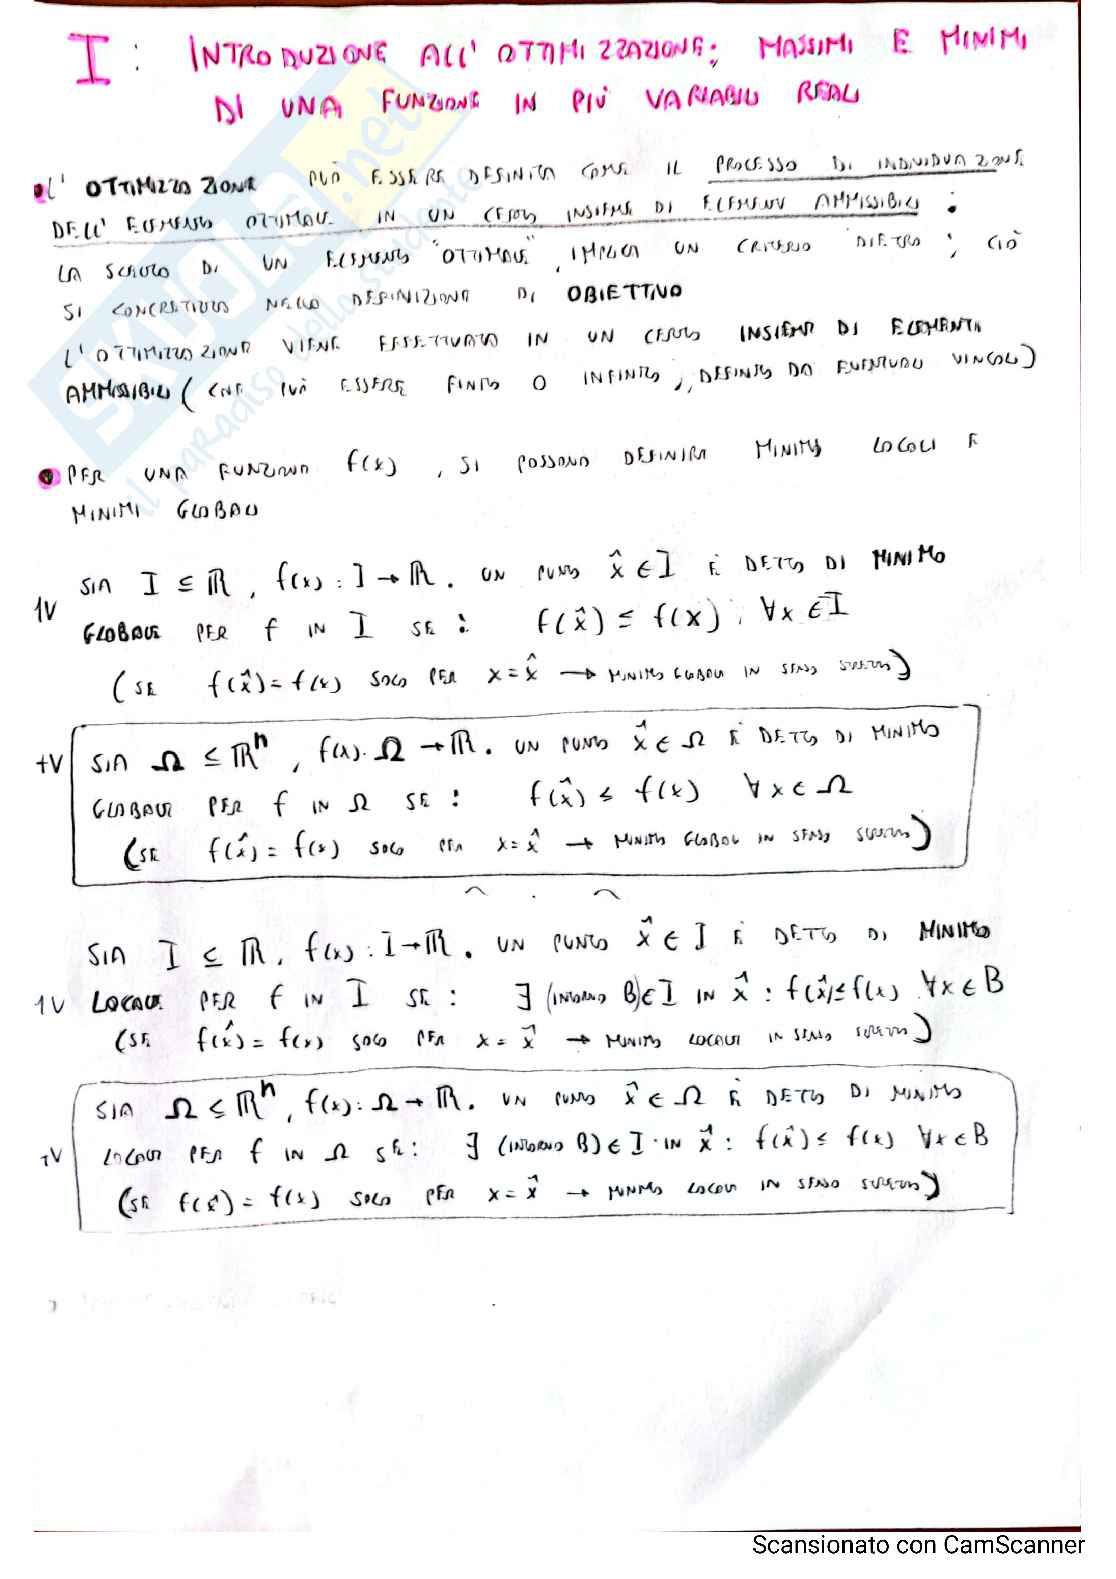 I: INTRODUZIONE ALL' OTTIMIZZAZIONE; MASSIMI E MINIMI
DI UNA FUNZIONE IN PIÙ VARIABILI REALI
L' OTTIMIZZAZIONE PUÒ ESSERE DEFINITA COME IL PROCESSO DI INDIVIDUAZIONE
DELL' ELEMENTO OTTIMALE IN UN CERTO INSIEME DI ELEMENTI AMMISSIBILI :
LA SCELTA DI UN ELEMENTO "OTTIMALE", IMPLICA UN CRITERIO DIETRO ; CIÒ
SI CONCRETIZZA NELLA DEFINIZIONE DI OBIETTIVO
L' OTTIMIZZAZIONE VIENE EFFETTUATA IN UN CERTO INSIEME DI ELEMENTI
AMMISSIBILI ( CHE PUÒ ESSERE FINITO O INFINITO, DEFINITO DA EVENTUALI VINCOLI )
PER UNA FUNZIONE f(x) , SI POSSONO DEFINIRE MINIMI LOCALI E
MINIMI GLOBALI
SIA I ⊆ ℝ , f(x) : I → ℝ . UN PUNTO x̂ ∈ I È DETTO DI MINIMO
1V GLOBALE PER f IN I SE : f(x̂) ≤ f(x) , ∀x ∈ I
(SE f(x̂) = f(x) SOLO PER x = x̂ → MINIMO GLOBALE IN SENSO STRETTO)
+V SIA Ω ⊆ ℝⁿ , f(x): Ω → ℝ . UN PUNTO x̂ ∈ Ω È DETTO DI MINIMO
GLOBALE PER f IN Ω SE : f(x̂) ≤ f(x) ∀x ∈ Ω
(SE f(x̂) = f(x) SOLO PER x = x̂ → MINIMO GLOBALE IN SENSO STRETTO)
SIA I ⊆ ℝ, f(x) : I → ℝ . UN PUNTO x̂ ∈ I È DETTO DI MINIMO
1V LOCALE PER f IN I SE : ∃ (INTORNO B) ∈ I IN x̂ : f(x̂) ≤ f(x) ∀x ∈ B
(SE f(x̂) = f(x) SOLO PER x = x̂ → MINIMO LOCALE IN SENSO STRETTO)
SIA Ω ⊆ ℝⁿ, f(x): Ω → ℝ . UN PUNTO x̂ ∈ Ω È DETTO DI MINIMO
+V LOCALE PER f IN Ω SE: ∃ (INTORNO B) ∈ I IN x̂ : f(x̂) ≤ f(x) ∀x ∈ B
(SE f(x̂) = f(x) SOLO PER x = x̂ → MINIMO LOCALE IN SENSO STRETTO)
SKUOLA.net
il paradiso dello studente
Scansionato con CamScanner